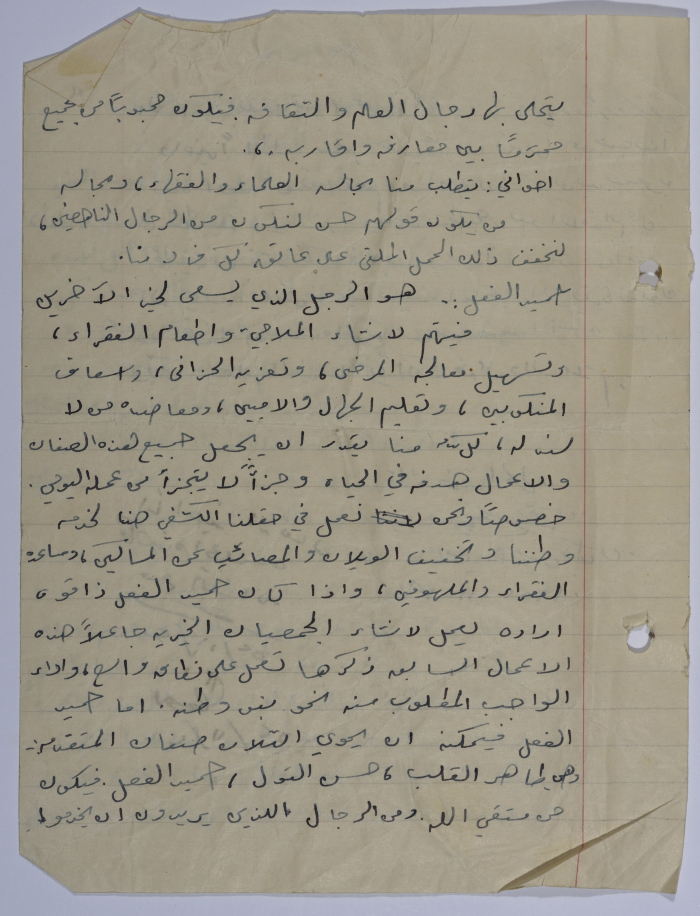 يتحلى بها رجال العلم والثقافه. فيكون محبوباً من جميع
محترماً بين معارفه واقاربه .،.
اخواني: يتطلب منا مجالسه العلماء والفقهاء، ومجالسه
من يكون قولهم حسن لنكون من الرجال الناصحين،
لنخفف ذلك الحمل الملقى على عاتق كل فرد منا.
حميد الفعل :. هو الرجل الذي يسعى لخير الآخرين
فيهتم لانشاء الملاجئ واطعام الفقراء،
وتسهيل معالجه المرضى، وتعزيه الحزانى، واسعاف
المنكوبين، وتعليم الجهال والاميين، ومعاضده من لا
سند له، كل منا يقدر ان يجعل جميع هذه الصفات
والاعمال هدفه في الحياه وجزأً لا يتجزأ من عمله اليومي.
خصوصاً ونحن نعمل في حقلنا الكشفي هنا لخدمه
وطننا وتخفيف الويلات والمصائب عن المساكين، ومساعده
الفقراء والملهوفين، واذا كان حميد الفعل ذا قوه
اراده يعمل لانشاء الجمعيات الخيريه جاعلاً هذه
الاعمال السابعه ذكرها تعمل على نطاق واسع، واداء
الواجب المطلوب منه نحو بني وطنه. اما حميد
الفعل فيمكنه ان يحوي الثلاث صفات المتقدمه
وهي طاهر القلب، حسن القول، حميد الفعل. فيكون
من متقي الله. ومن الرجال اللذين يريدون ان يخدموا